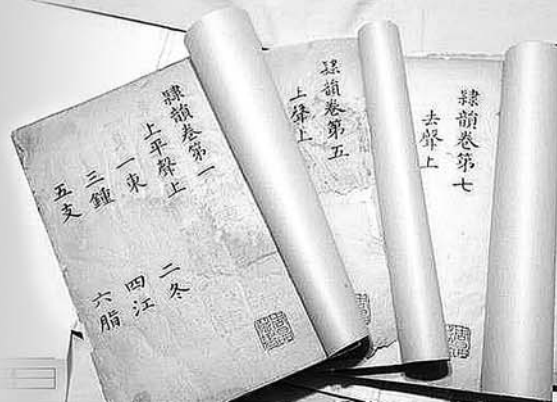 隸韻卷第一
上平聲上
一東
二冬
三鍾
四江
五支
六脂
隸韻卷第五
上聲上
隸韻卷第七
去聲上